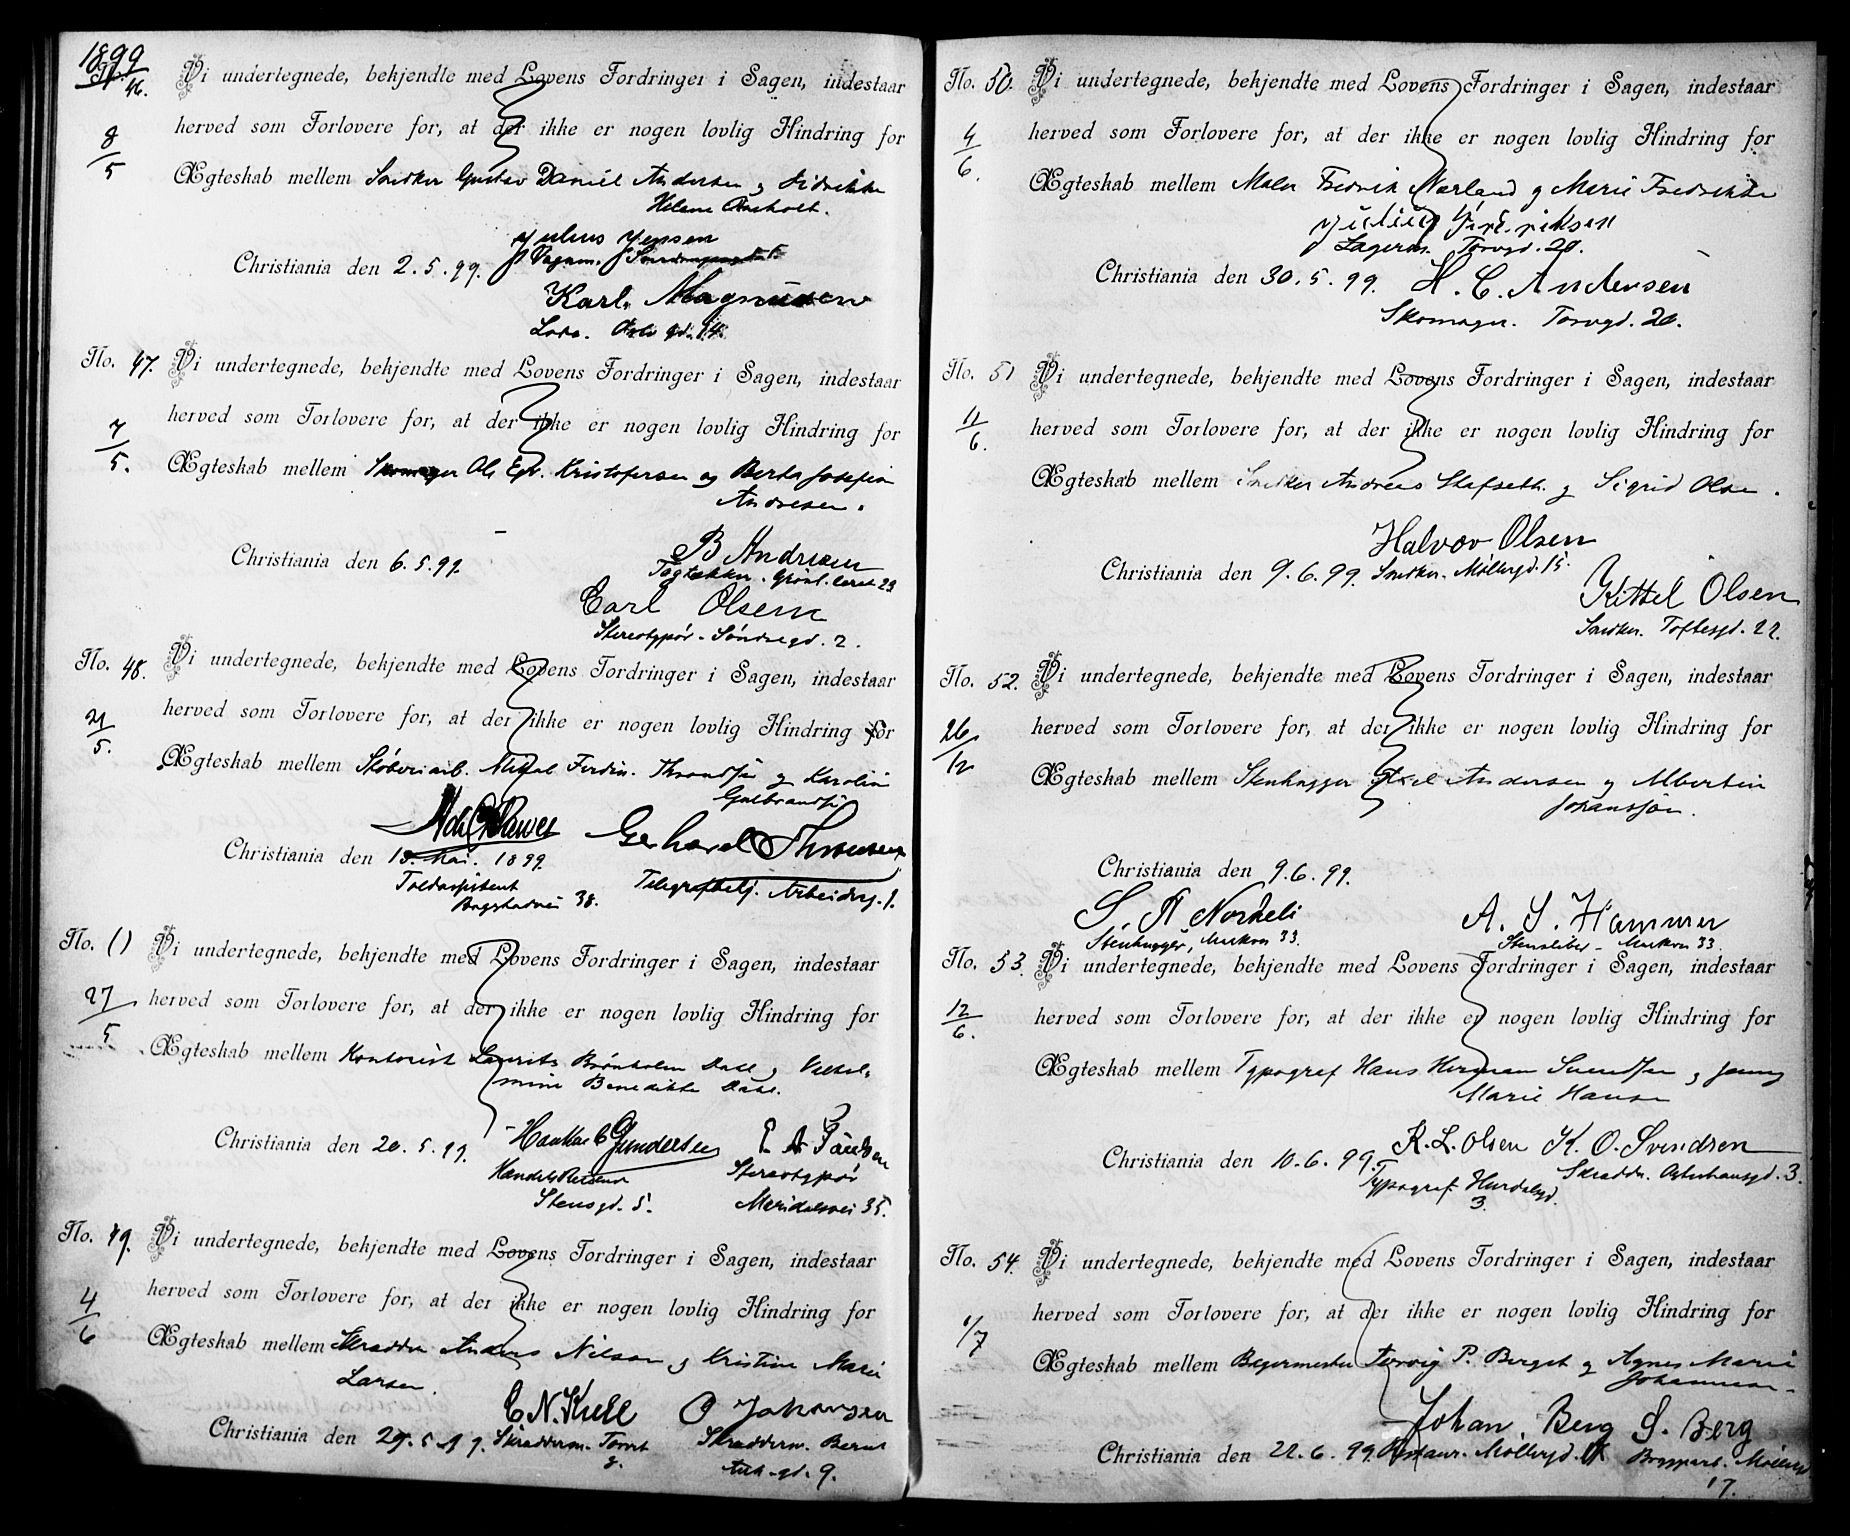 1899
No. 46. Vi undertegnede, bekjendte med Lovens Fordringer i Sagen, indestaar
8/5 herved som Forlovere for, at der ikke er nogen lovlig Hindring for
Ægteskab mellem Snedker Gustav Daniel Andersen og Fredrikke
Helene
Julius Jensen
Christiania den 2.5.99.
Karl Magnusen
Oslo gd. 14.
No. 47. Vi undertegnede, bekjendte med Lovens Fordringer i Sagen, indestaar
7/5. herved som Forlovere for, at der ikke er nogen lovlig Hindring for
Ægteskab mellem Skomager Ole Edv. Kristofersen og Berta Josefin
Andresen.
B Andresen
Christiania den 6.5.99. Tagtækker. Grønl. leret 23
Carl Olsen
Stereotypør. Søndregd. 2.
No. 48. Vi undertegnede, bekjendte med Lovens Fordringer i Sagen, indestaar
21/5. herved som Forlovere for, at der ikke er nogen lovlig Hindring for
Ægteskab mellem Støberiarb. Mikal Ferdin. Thrandsen og Karolin
Gulbrandsen
Gerhard
Christiania den 18. Mai. 1899.
Toldassistent Telegrafbetj. Arbeiderg. 1.
Bogstadvei 38.
No. () Vi undertegnede, bekjendte med Lovens Fordringer i Sagen, indestaar
27/5 herved som Forlovere for, at der ikke er nogen lovlig Hindring for
Ægteskab mellem Kontorist Laurits Dahl og Vilhel-
mine Benedikte Dahl.
Christiania den 20.5.99. Haakon C Gundersen E. A. Paulsen
Handelsreisende Stereotypør
Stensgd. 5. Maridalsvei 35.
No. 49. Vi undertegnede, bekjendte med Lovens Fordringer i Sagen, indestaar
4/6 herved som Forlovere for, at der ikke er nogen lovlig Hindring for
Ægteskab mellem Skrædder Anders Nilsen og Kristine Marie
Larsen.
C. N. Kull O Johansen
Christiania den 29.5.99. Skrædderm. Torvet Skrædderm. Bernt
9. Ank.gd. 9.
No. 50. Vi undertegnede, bekjendte med Lovens Fordringer i Sagen, indestaar
4/6. herved som Forlovere for, at der ikke er nogen lovlig Hindring for
Ægteskab mellem Maler Fredrik Nærland og Marie Fredrikke
Fredriksen
Lagerm. Torvgd. 20.
Christiania den 30.5.99. H. C. Andersen
Skomager. Torvgd. 20.
No. 51 Vi undertegnede, bekjendte med Lovens Fordringer i Sagen, indestaar
11/6. herved som Forlovere for, at der ikke er nogen lovlig Hindring for
Ægteskab mellem Snedker Andreas Stafseth og Sigrid Olsen.
Halvor Olsen
Christiania den 9.6.99. Snedker. Møllergd. 15.
Kittel Olsen
Snedker. Toftesgd. 22.
No. 52. Vi undertegnede, bekjendte med Lovens Fordringer i Sagen, indestaar
26/12 herved som Forlovere for, at der ikke er nogen lovlig Hindring for
Ægteskab mellem Stenhugger Axel Andersen og Albertin
Johansson.
Christiania den 9.6.99.
S. A. Norheli A. S. Hammer
Stenhugger, Markvn 33. Stensliber - Markvn 33.
No. 53. Vi undertegnede, bekjendte med Lovens Fordringer i Sagen, indestaar
12/6. herved som Forlovere for, at der ikke er nogen lovlig Hindring for
Ægteskab mellem Typograf Hans Herman Svendsen og Jenny
Marie Hansen
R. L. Olsen K. O. Svendsen
Christiania den 10.6.99. Skrædder. Akershusgd. 3.
Typograf Hurdalsgd.
3.
No. 54. Vi undertegnede, bekjendte med Lovens Fordringer i Sagen, indestaar
1/7 herved som Forlovere for, at der ikke er nogen lovlig Hindring for
Ægteskab mellem Bagermester P. Berget og Agnes Marie
Johannesen
Johan Berg S. Berg
Christiania den 22.6.99. Restaur. Møllergd. Møllergd
17.